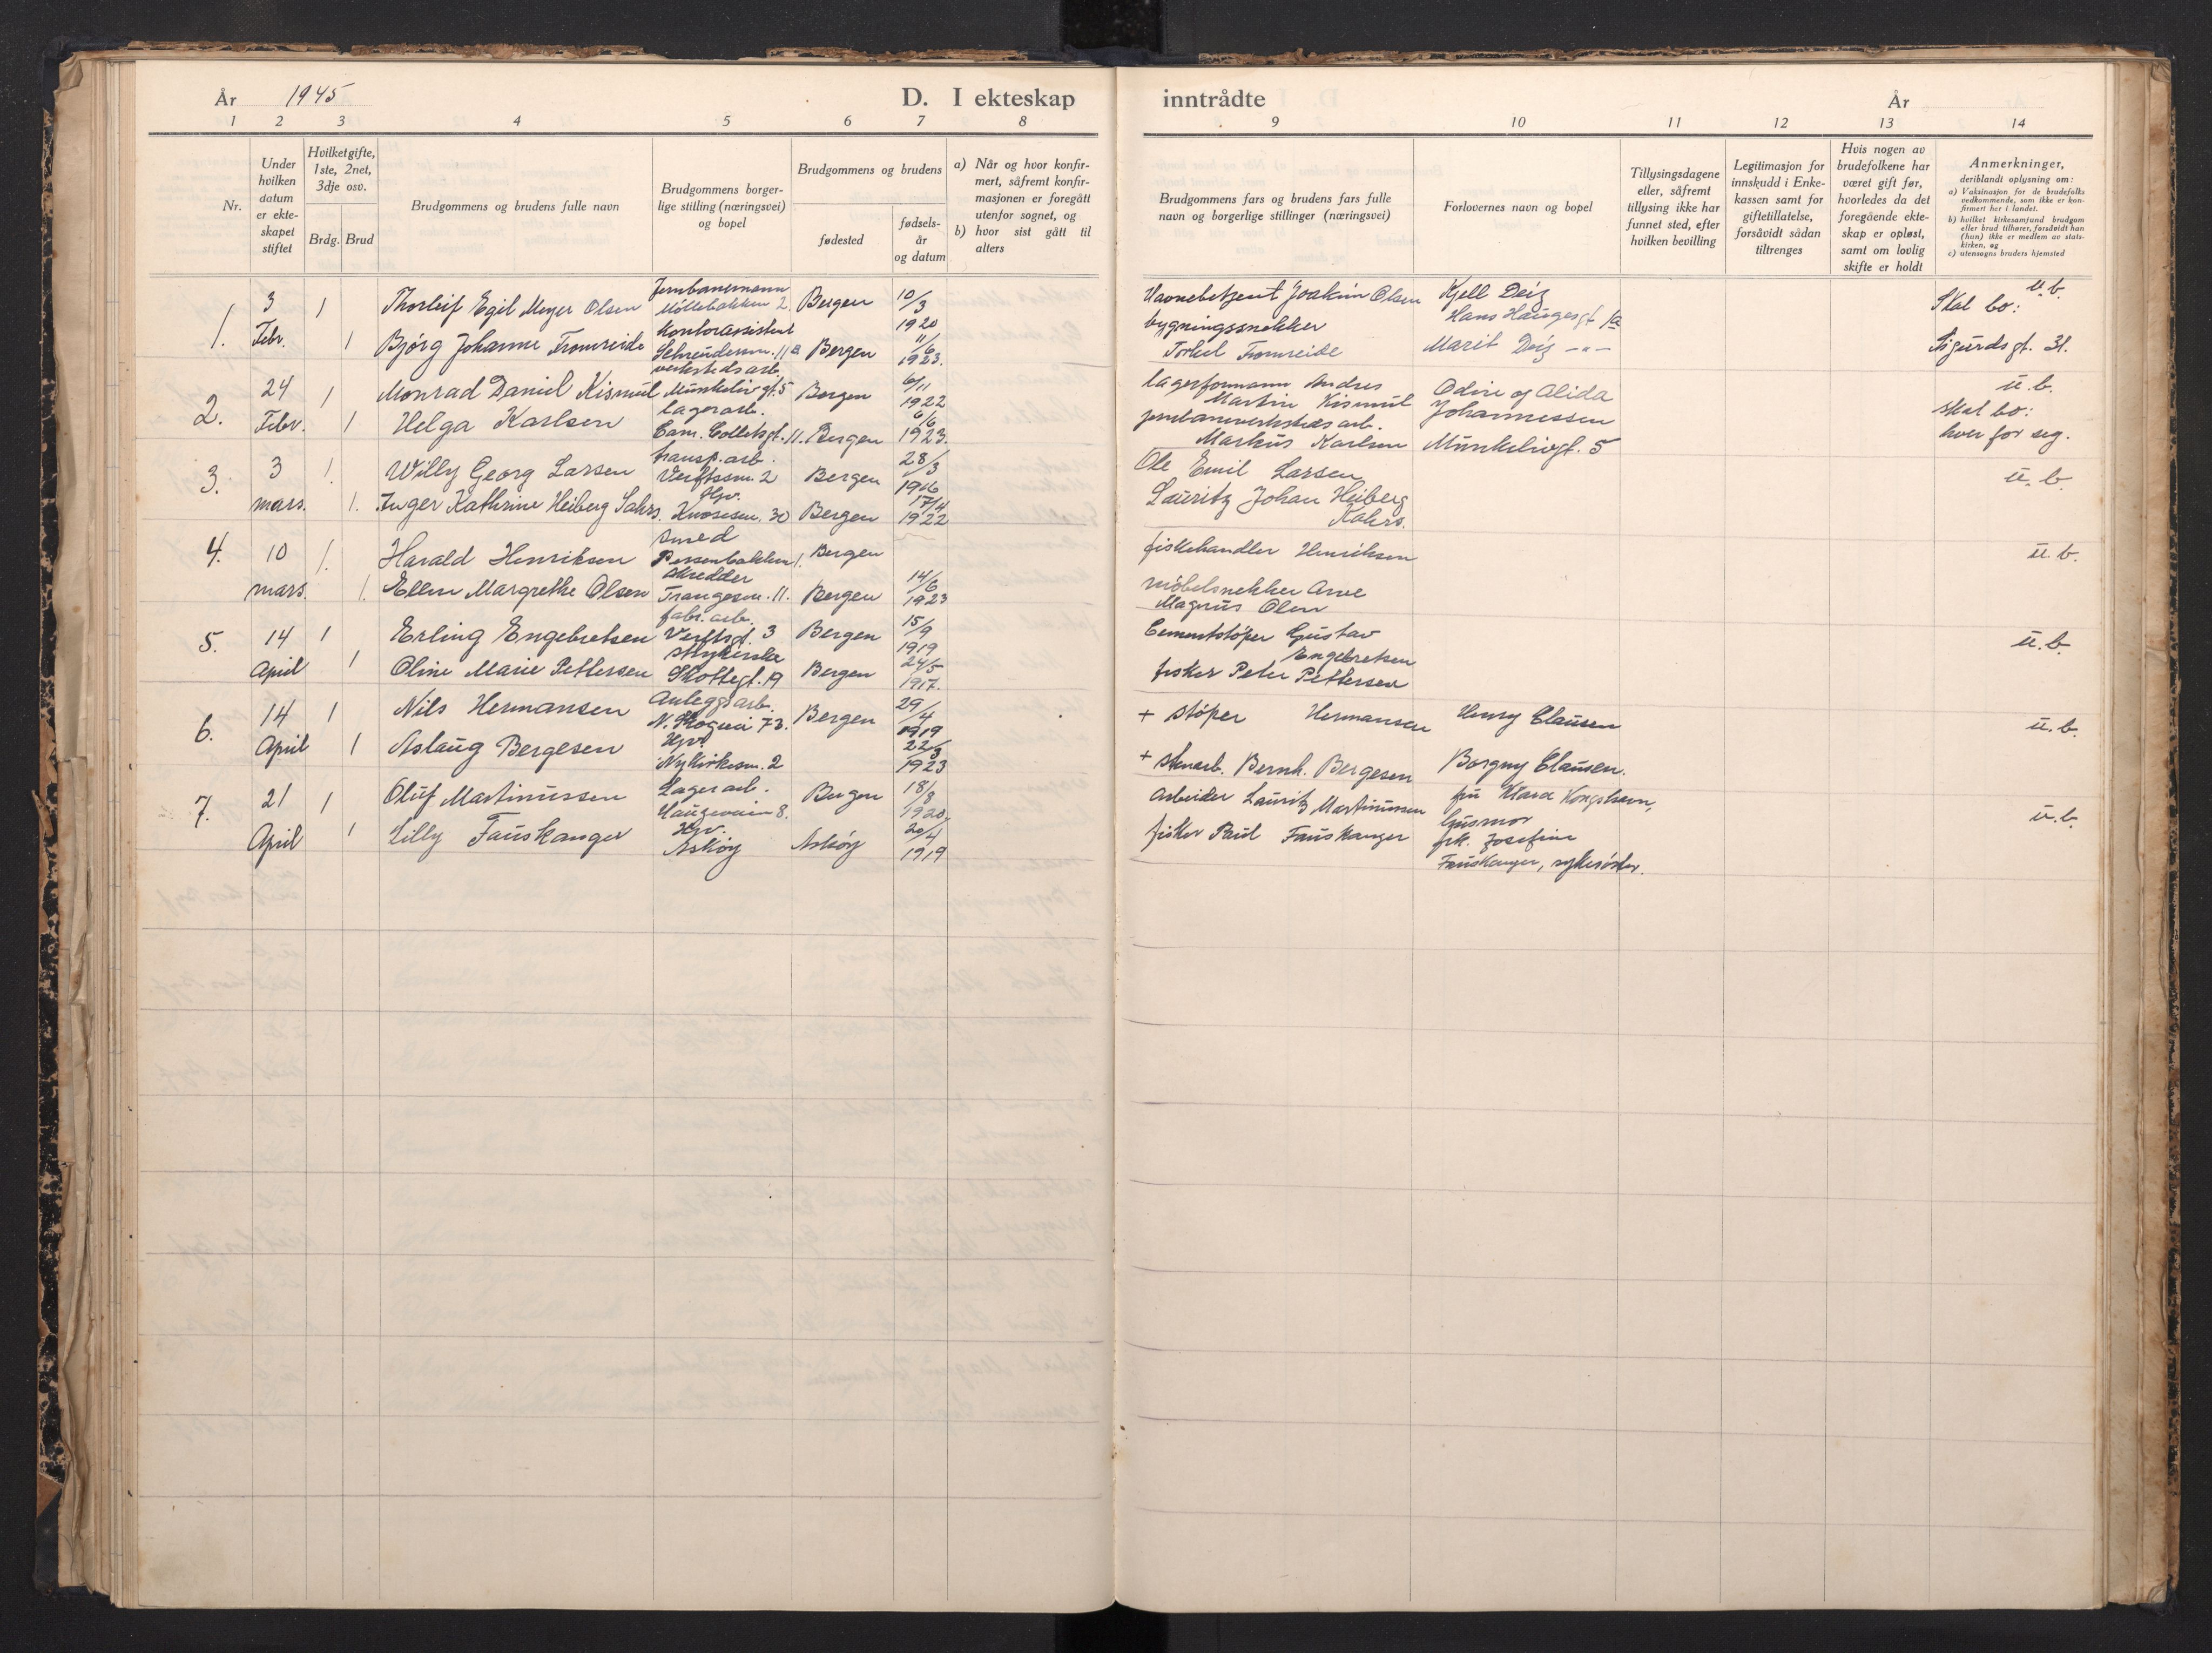 År 1945
D. I ekteskap
inntrådte
År
1 2 3 4 5 6 7 8
9 10 11 12 13 14
Nr.
Under hvilken datum er ekteskapet stiftet
Hvilketgifte, 1ste, 2net, 3dje osv.
Brdg. Brud
Brudgommens og brudens fulle navn
Brudgommens borgerlige stilling (næringsvei) og bopel
Brudgommens og brudens
fødested
fødselsår og datum
a) Når og hvor konfirmert, såfremt konfirmasjonen er foregått utenfor sognet, og
b) hvor sist gått til alters
Brudgommens fars og brudens fars fulle navn og borgerlige stillinger (næringsvei)
Forlovernes navn og bopel
Tillysingsdagene eller, såfremt tillysing ikke har funnet sted, efter hvilken bevilling
Legitimasjon for innskudd i Enkekassen samt for giftetillatelse, forsåvidt sådan tiltrenges
Hvis nogen av brudefolkene har været gift før, hvorledes da det foregående ekteskap er opløst, samt om lovlig skifte er holdt
Anmerkninger,
deriblandt oplysning om:
a) Vaksinasjon for de brudefolks vedkommende, som ikke er konfirmert her i landet.
b) hvilket kirkesamfund brudgom eller brud tilhører, forsåvidt han (hun) ikke er medlem av statskirken, og
c) utensogns bruders hjemsted
1. 3 Febr. 1 Thorleif Egil Meyer Olsen Jernbanemann Møllebakken 2 Bergen 10/3 1920
1 Bjørg Johanne Tromreide Kontorassistent 11a Bergen 11/6 1923.
Havnebetjent Joakim Olsen
bygningssnekker
Torkel Tromreide
Kjell Deiz
Hans Haugesgt 1a
Marit Deiz -"-
u.b.
Skal bo:
Sigurdsgt. 31.
2. 24 Febr. 1 Monrad Daniel Kismul verkstedsarb. Munkelivgt. 5 Bergen 6/11 1922
1 Helga Karlsen lagerarb. Cam. Colletsgt. 11. Bergen 6/6 1923.
lagerformann Andres
Martin Kismul
jernbaneverkstedsarb.
Markus Karlsen
Odin og Alida
Johannessen
Munkelivgt. 5
u.b.
skal bo:
hver for seg.
3. 3 mars. 1 Willy Georg Larsen transp.arb. Verftssm. 2 Bergen 28/3 1916
1. Inger Kathrine Heiberg Kahrs. Hpv. Knøsesm. 30 Bergen 17/4 1922
Ole Emil Larsen
Lauritz Johan Heiberg
Kahrs.
u.b.
4. 10 mars. 1. Harald Henriksen smed Persenbakken 1. Bergen
1. Ellen Margrethe Olsen skredder Trangesm. 11. Bergen 14/6 1923
fiskehandler Henriksen
møbelsnekker Arve
Magnus Olsen
u.b.
5. 14 April 1 Erling Engebretsen fabr.arb. Verftsgt. 3 Bergen 15/9 1919
1 Oline Marie Pettersen strykerske Skottegt. 19 Bergen 24/5 1917.
Cementstøper Gustav
Engebretsen
fisker Peter Pettersen
u.b.
6. 14 April 1 Nils Hermansen Anleggsarb. N. Skogvei 73. Bergen 29/4 1919
1 Aslaug Bergesen Hpv. Nykirkesm. 2 22/3 1923
+ støper Hermansen
+ Bernh. Bergesen
Henry Clausen
Borgny Clausen.
u.b.
7. 21 April 1 Oluf Martinussen Lagerarb. Haugeveien 8. Bergen 18/8 1920,
1 Lilly Fauskanger Hpv. Askøy Askøy 20/4 1919
arbeider Lauritz Martinussen
fisker Paul Fauskanger
fru Klara Kongshavn,
husmor
frk. Josefine
Fauskanger, sykesøster.
u.b.